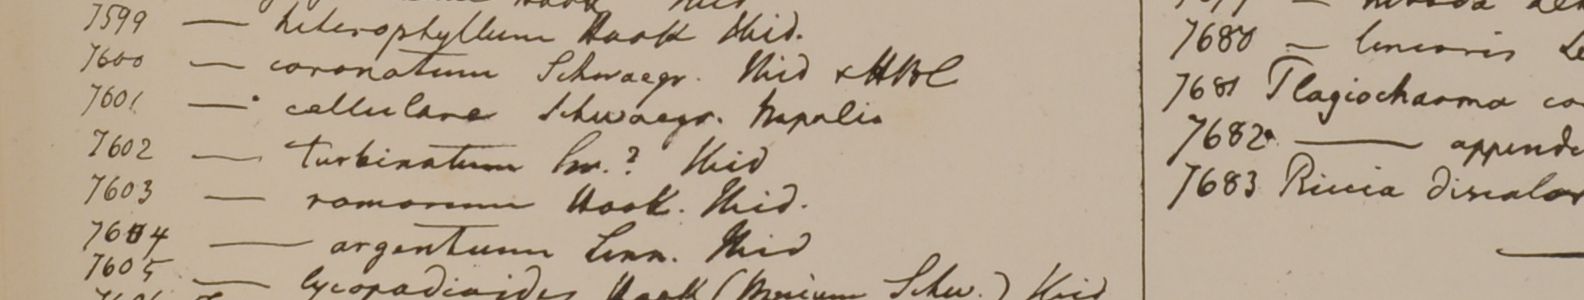 7599 — heterophyllum Hook Ibid.
7600 — coronatum Schwaegr. Ibid & HBC
7601 — cellulare Schwaegr. Napalia
7602 — turbinatum Sw.? Ibid
7603 — ramosum Hook. Ibid.
7604 — argenteum Linn. Ibid
7605 — lycopodioides Hook (Mnium Schw.) Ibid
7680 — linearis
7681 Plagiochasma
7682 — appende
7683 Riccia discolor